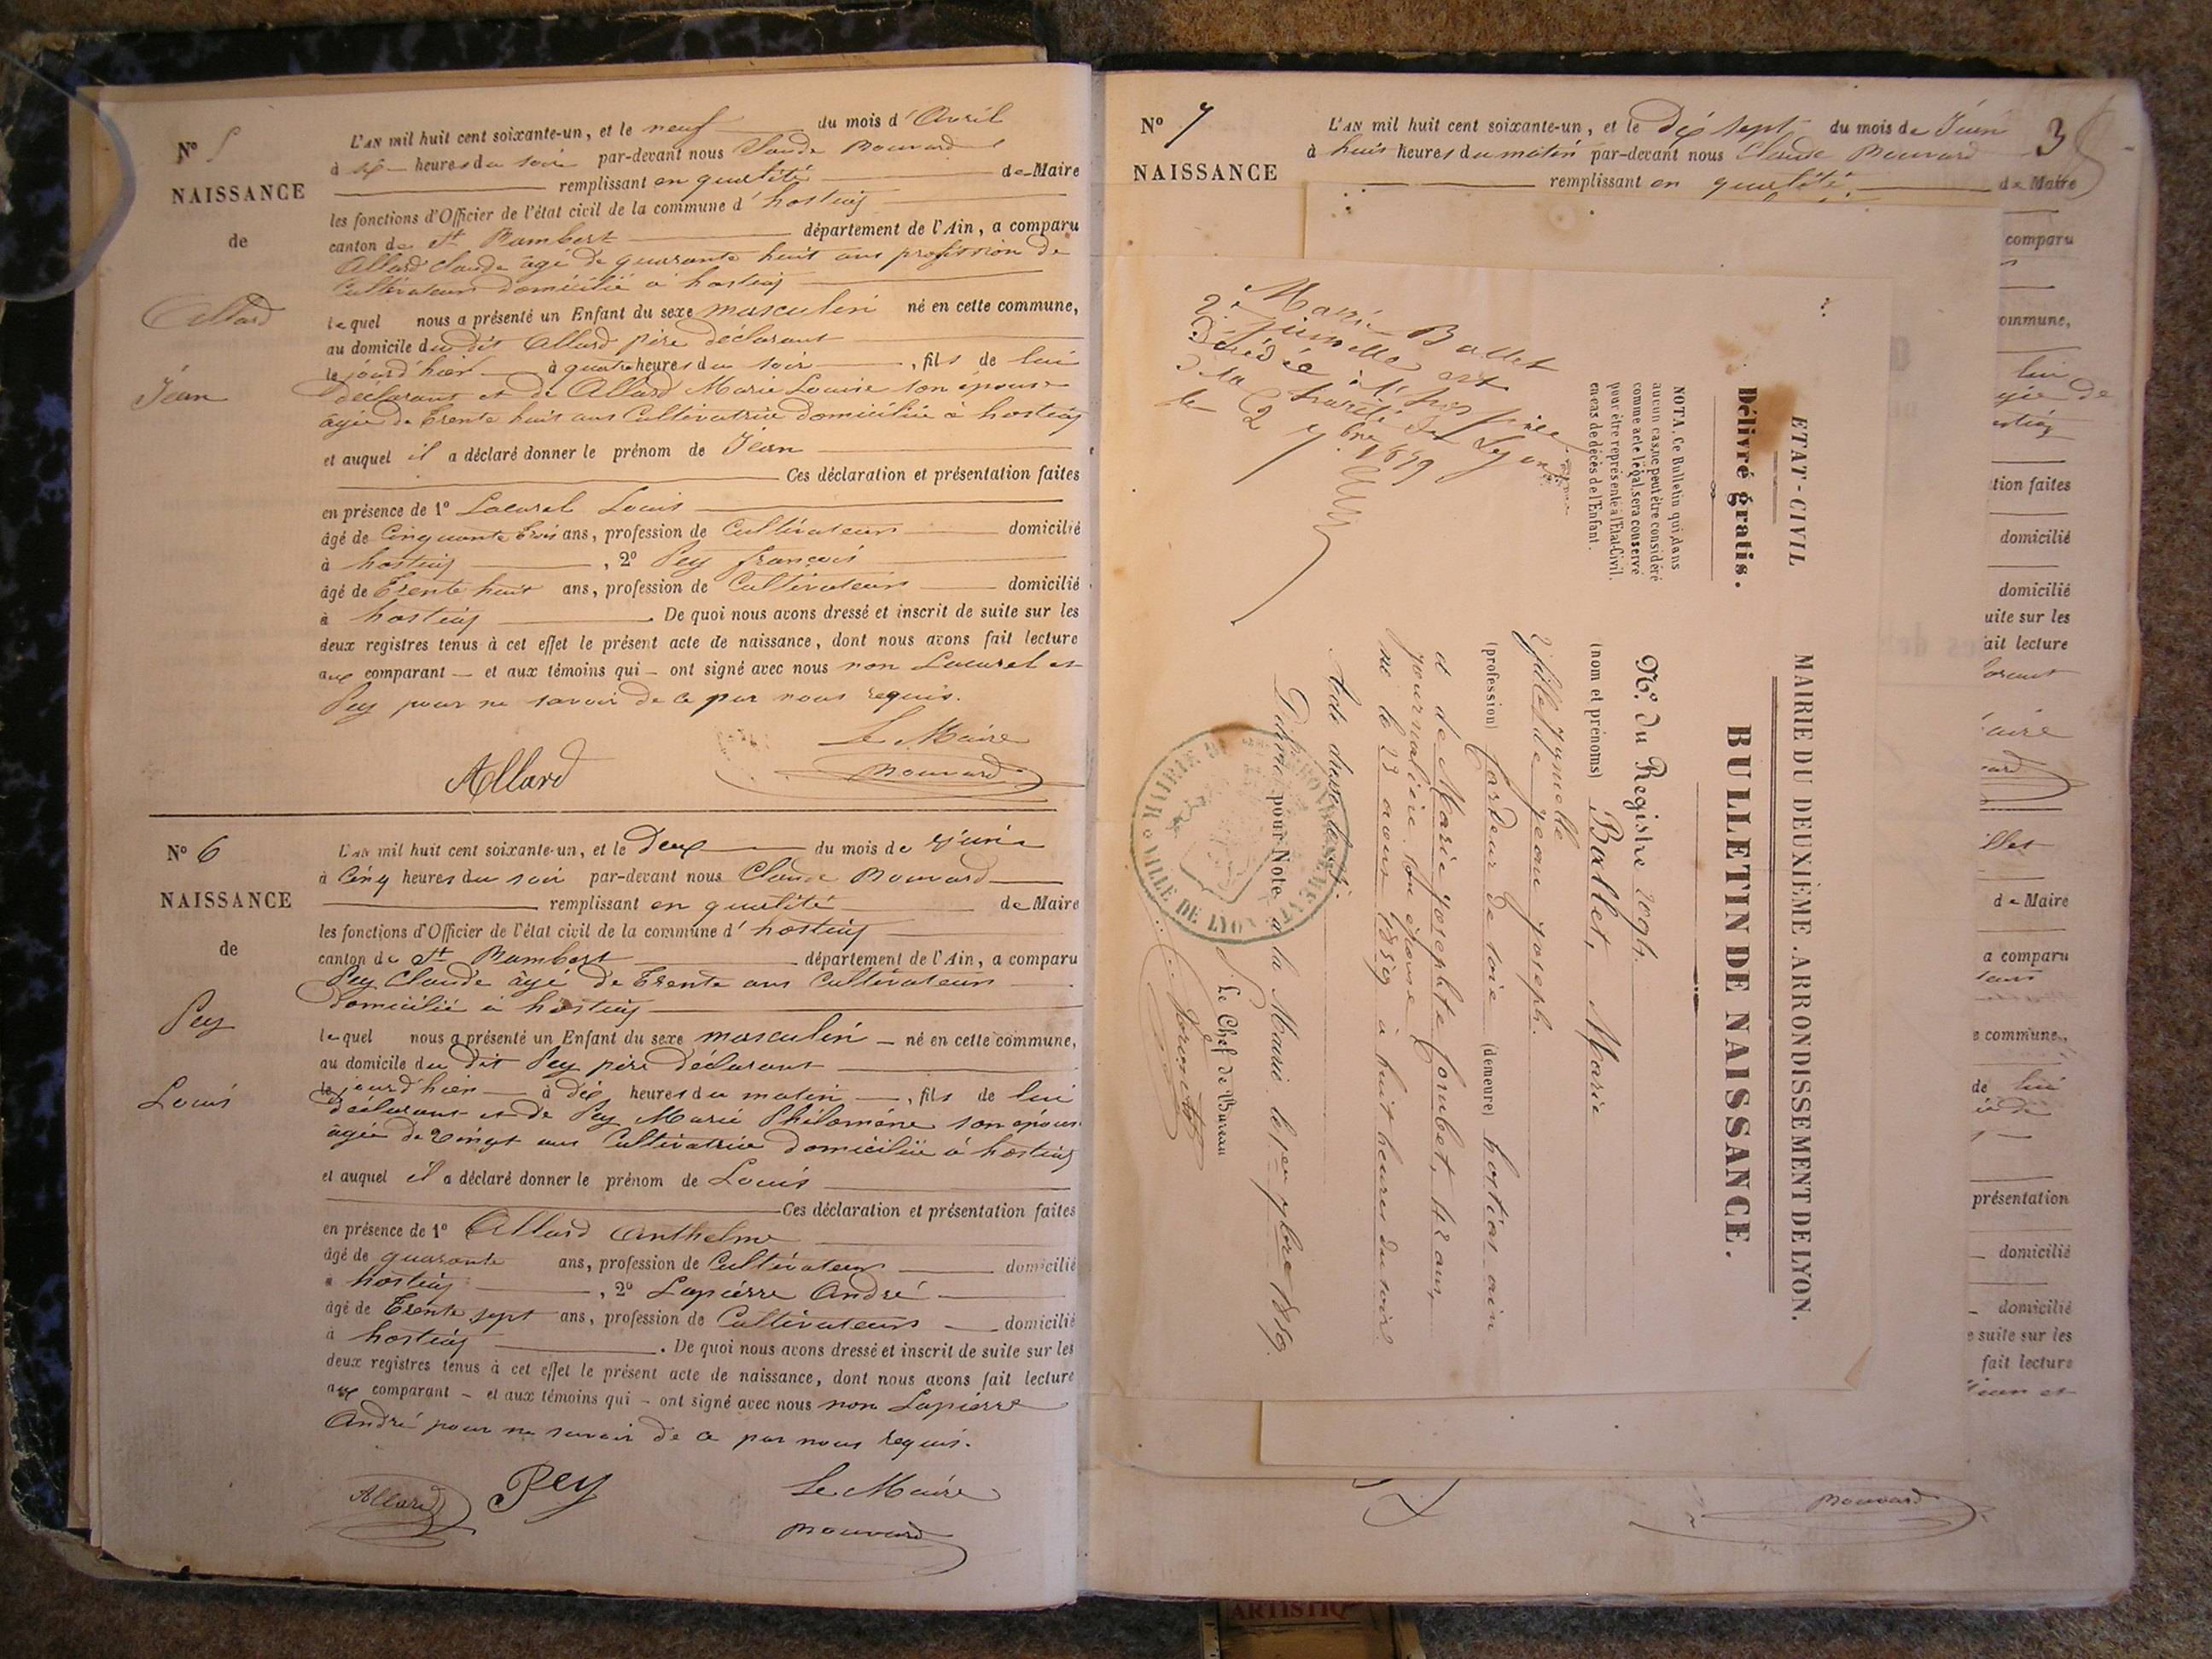 N° 5
NAISSANCE
de
Allard
Jean
L'AN mil huit cent soixante-un, et le neuf du mois d'Avril
à six heures du soir par-devant nous Claude Bouvard
remplissant en qualité de Maire
les fonctions d'Officier de l'état civil de la commune d'hostiaz
canton de St Rambert département de l'Ain, a comparu
Allard Claude âgé de quarante huit ans profession de
Cultivateur domicilié à hostiaz
lequel nous a présenté un Enfant du sexe masculin né en cette commune,
au domicile du dit Allard père déclarant
le jourd'hier à quatre heures du soir, fils de lui
déclarant et de Allard Marie Louise son épouse
âgée de Trente huit ans Cultivatrice domiciliée à hostiaz
et auquel il a déclaré donner le prénom de Jean
Ces déclaration et présentation faites
en présence de 1° Louis
âgé de Cinquante trois ans, profession de Cultivateur domicilié
à hostiaz, 2° Pey françois
âgé de Trente huit ans, profession de Cultivateur domicilié
à hostiaz. De quoi nous avons dressé et inscrit de suite sur les
deux registres tenus à cet effet le présent acte de naissance, dont nous avons fait lecture
aux comparant et aux témoins qui ont signé avec nous non et
Pey pour ne savoir de ce par nous requis.
Le Maire
Allard Bouvard
N° 6
NAISSANCE
de
Pey
Louis
L'AN mil huit cent soixante-un, et le Deux du mois de Juin
à Cinq heures du soir par-devant nous Claude Bouvard
remplissant en qualité de Maire
les fonctions d'Officier de l'état civil de la commune d'hostiaz
canton de St Rambert département de l'Ain, a comparu
Pey Claude âgé de Trente ans Cultivateur
domicilié à hostiaz
lequel nous a présenté un Enfant du sexe masculin né en cette commune,
au domicile du dit Pey père déclarant
le jourd'hier à dix heures du matin, fils de lui
déclarant et de Pey Marie Philomène son épouse
âgée de vingt ans Cultivatrice domiciliée à hostiaz
et auquel il a déclaré donner le prénom de Louis
Ces déclaration et présentation faites
en présence de 1° Allard Anthelme
âgé de quarante ans, profession de Cultivateur domicilié
à hostiaz, 2° Lapierre André
âgé de Trente sept ans, profession de Cultivateur domicilié
à hostiaz. De quoi nous avons dressé et inscrit de suite sur les
deux registres tenus à cet effet le présent acte de naissance, dont nous avons fait lecture
aux comparant et aux témoins qui ont signé avec nous non Lapierre
André pour ne savoir de ce par nous requis.
Allard Pey Le Maire
Bouvard
N° 7
NAISSANCE
L'AN mil huit cent soixante-un, et le dix sept du mois de Juin
à huit heures du matin par-devant nous Claude Bouvard
remplissant en qualité de Maire
3
MAIRIE DU DEUXIÈME ARRONDISSEMENT DE LYON.
ETAT-CIVIL
BULLETIN DE NAISSANCE.
Délivré gratis.
NOTA. Ce Bulletin qui, dans
aucun cas, ne peut être considéré
comme acte légal, sera conservé
pour être représenté à l'Etat-Civil,
en cas de décès de l'Enfant.
N° du Registre
(nom et prénoms) Ballet, Marie
2e jumelle
fille de Jean Joseph.
(profession) Cardeur de soie (demeure) hostias ain
et de Marie Josephte 42 ans,
journalière son épouse
né le 23 aout 1859 à huit heures du soir
Délivré pour Note à la Mairie le 1er 7bre 1859.
Le Chef de Bureau
MAIRIE DU VILLE DE LYON
Marie Ballet
2e jumelle est
Décédée à l'hospice
de la Charité de Lyon
le 2 7bre 1859
comparu
commune,
lui
tion faites
domicilié
domicilié
uite sur les
ait lecture
de Maire
a comparu
e commune,
de lui
présentation
domicilié
domicilié
e suite sur les
fait lecture
Bouvard
ARTISTIQ